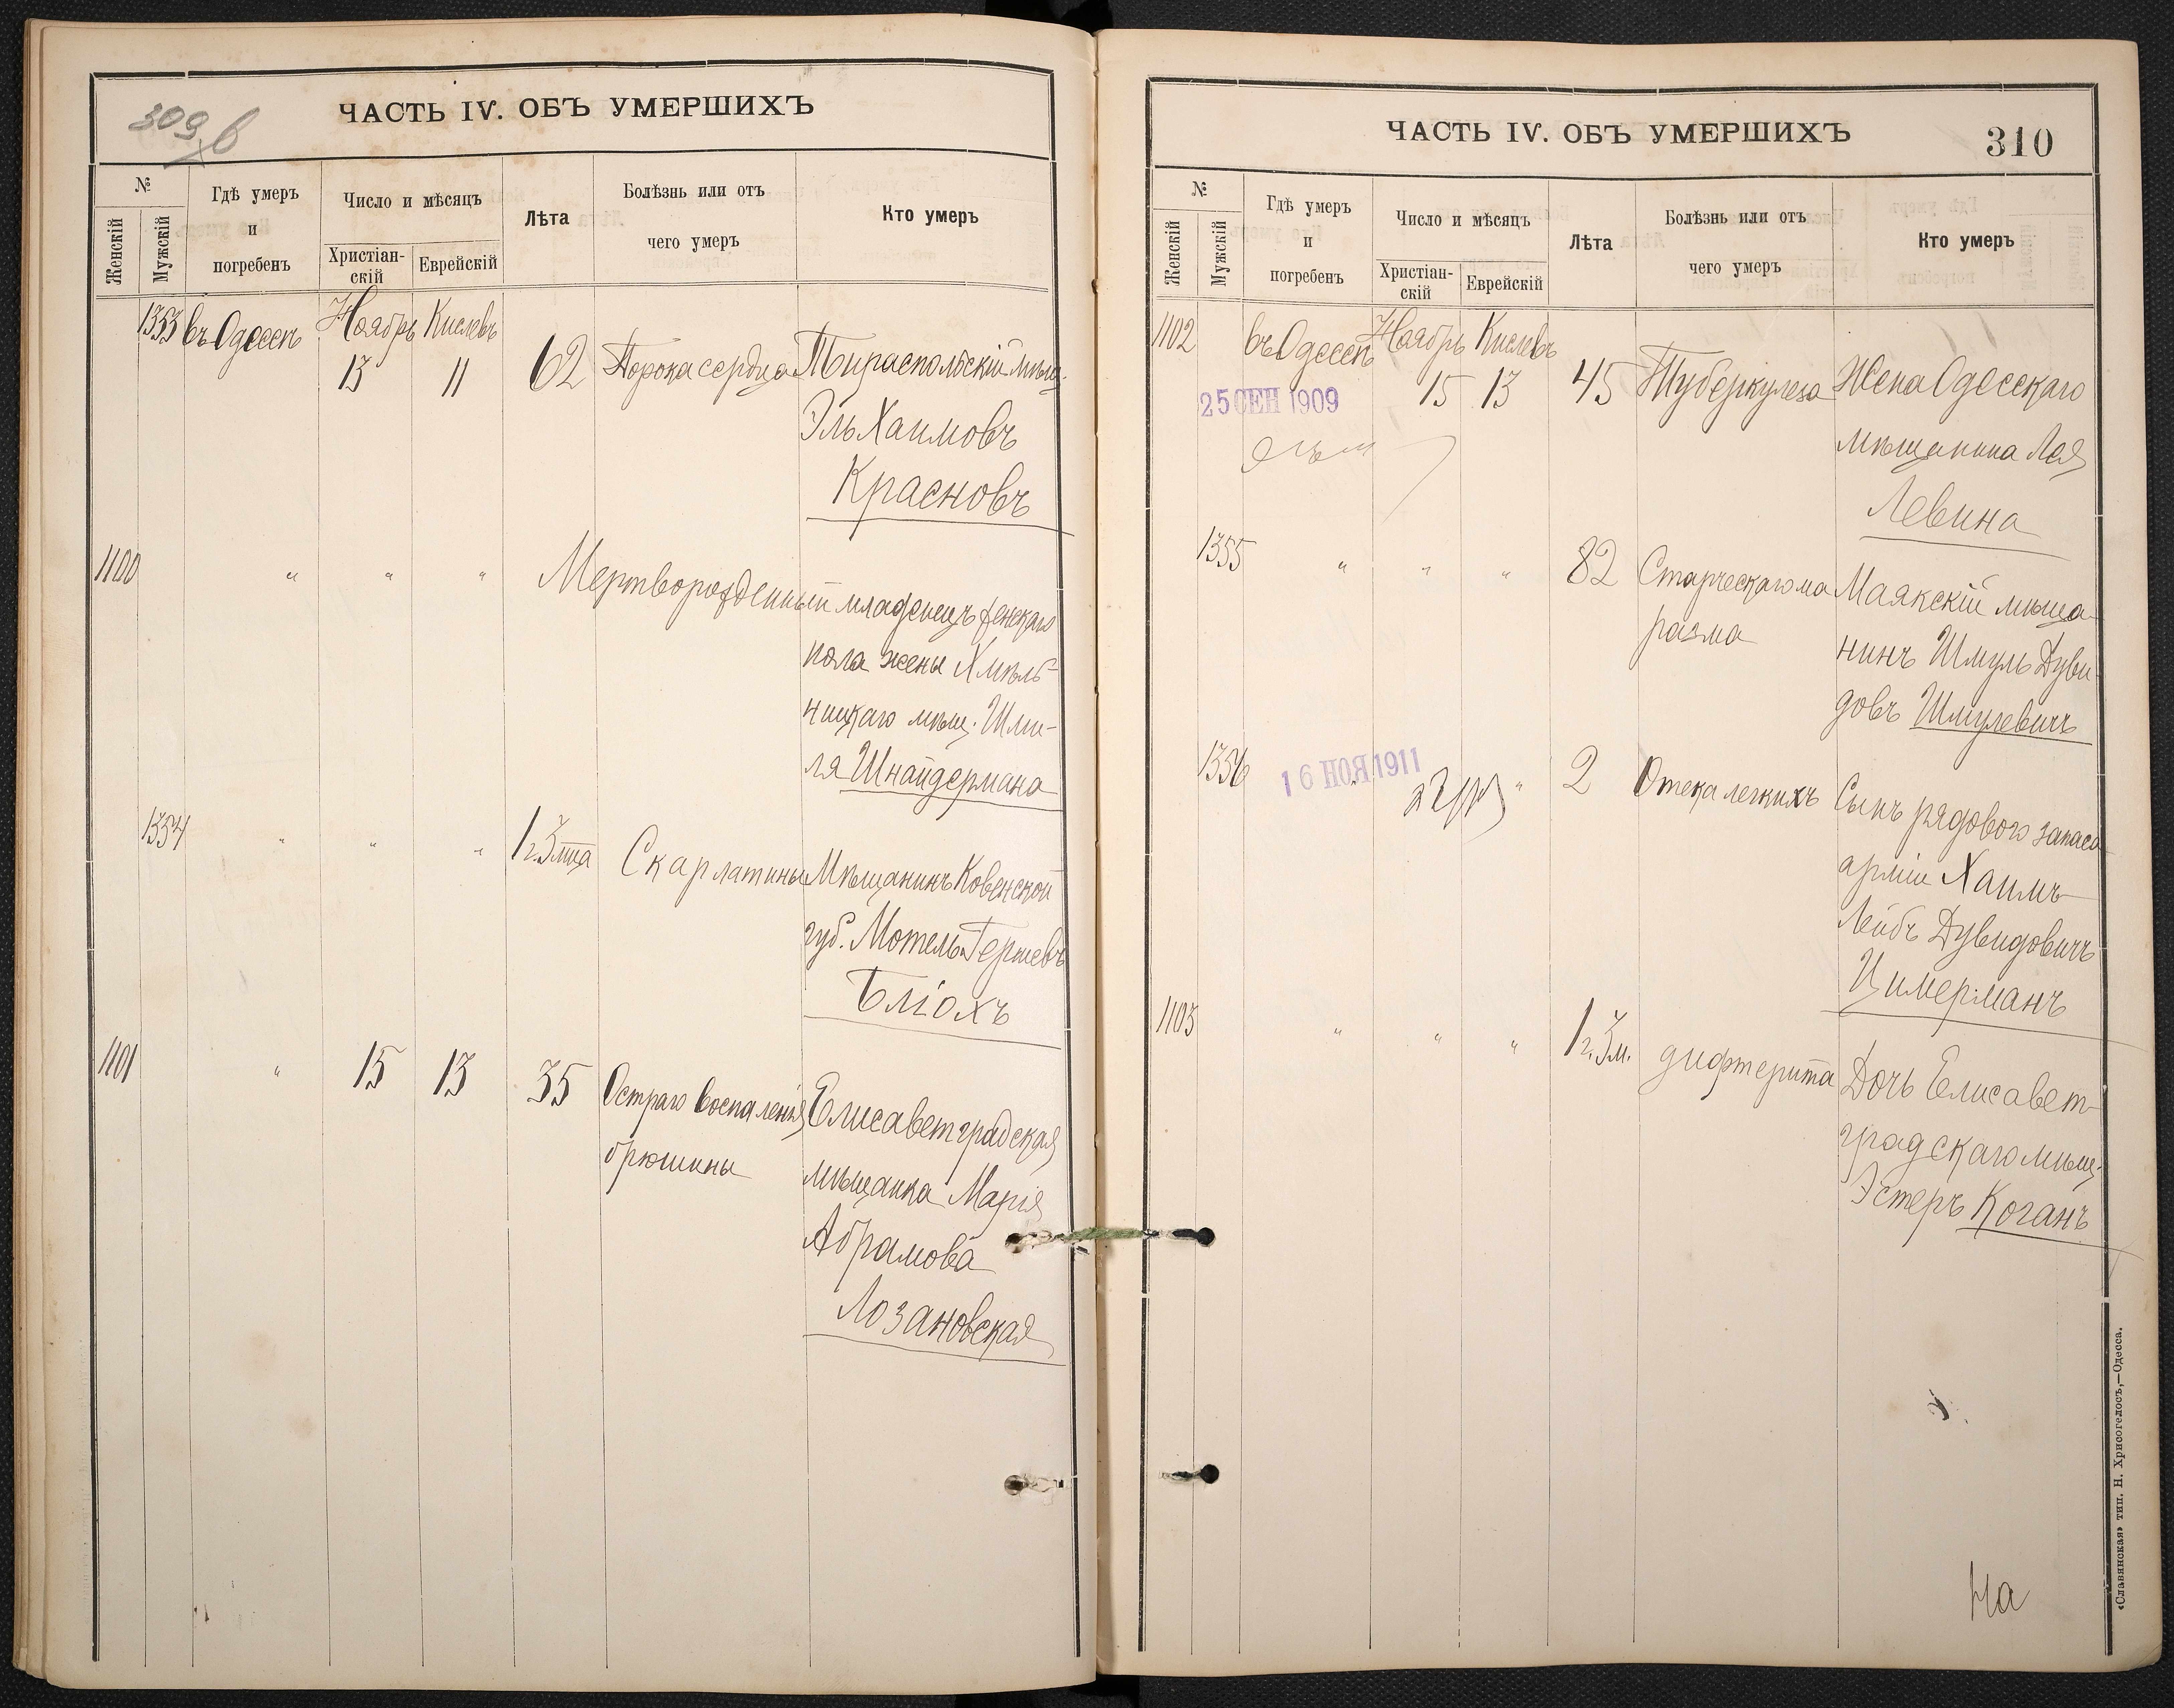 309 в
ЧАСТЬ IV. ОБЪ УМЕРШИХЪ
№
Женскій
Мужскій
Гдѣ умеръ
и
погребенъ
Число и мѣсяцъ
Христіан-
скій
Еврейскій
Лѣта
Болѣзнь или отъ
чего умеръ
Кто умеръ
1353 въ Одессѣ Ноябрь Кислевъ
13 11 62 Порока сердца Тираспольскій мѣщ.
Эль Хаимовъ
Красновъ
1100 " " " Мертворожденный младенецъ женскаго
пола жены Хмѣль-
ницкаго мѣщ. Шми-
ля Шнайдермана
1354 " " " 1 г. 3 мца Скарлатины Мѣщанинъ Ковенской
губ. Мотель Гершевъ
Бліохъ
1101 " 15 13 35 Остраго воспаленія Елисаветградская
брюшины мѣщанка Марія
Абрамова
Лозановская
ЧАСТЬ IV. ОБЪ УМЕРШИХЪ
310
№
Женскій
Мужскій
Гдѣ умеръ
и
погребенъ
Число и мѣсяцъ
Христіан-
скій
Еврейскій
Лѣта
Болѣзнь или отъ
чего умеръ
Кто умеръ
1102 въ Одессѣ Ноябрь Кислевъ
15 13 45 Туберкулеза Жена Одесскаго
25 СЕН 1909
мѣщанина Лея
Левина
1355 " " " 82 Старческаго ма Маякскій мѣща-
разма нинъ Шмуль Дуви-
довъ Шмулевичъ
1356 16 НОЯ 1911 " 2 Отека легкихъ Сынъ рядового запаса
арміи Хаимъ-
Лейбъ Дувидовичъ
Цимерманъ
1103 " " " 1 г. 3 м. дифтерита Дочь Елисавет-
градскаго мѣщ.
Эстеръ Коганъ
На
«Славянская» тип. Н. Хрисогелосъ,—Одесса.